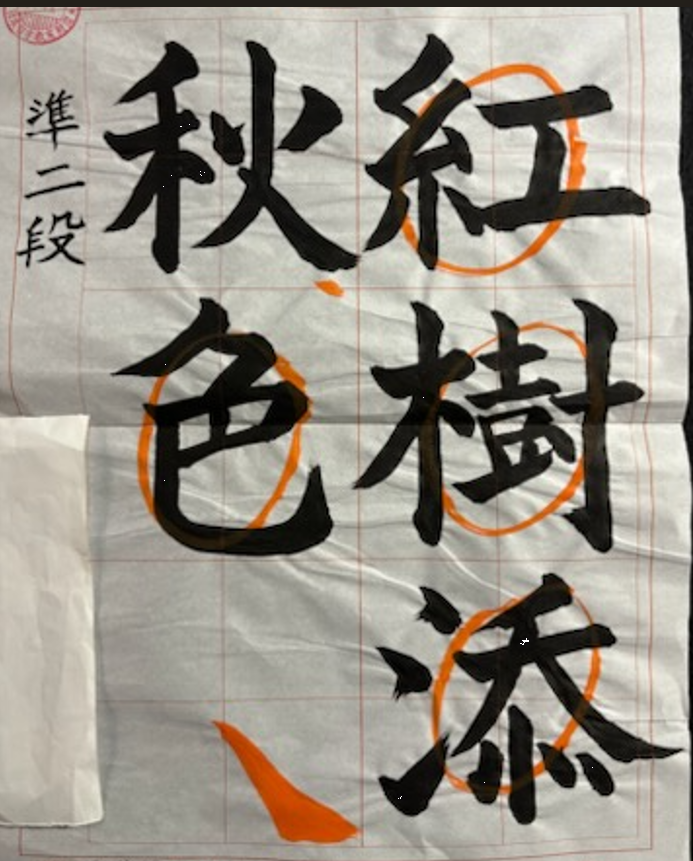 紅樹添
秋色
準二段